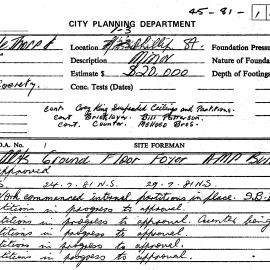 45-81-1
CITY PLANNING DEPARTMENT
1-3
Location Phillip St. Foundation Pressu
Description Minor Nature of Founda
Estimate $ 20,000 Depth of Footings
Society. Conc. Tests (Dates)
cont. King Suspended Ceilings and Partitions.
cont Bricklayer. Bill Patterson.
cont. Counter. Ashwood Bros.
D.A. No. SITE FOREMAN
Ground Floor Foyer AMP Bui
approved
24.7.81 N.S. 29.7.81 N.S.
Work commenced internal partitions in place. I.B.
titions in progress to approval
titions in progress to approval. Counter being
titions in progress to approval.
titions in progress to approval.
titions in progress to approval.